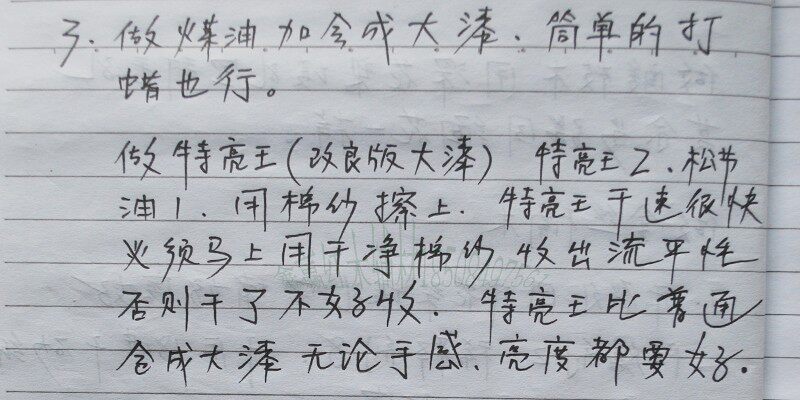 3. 做煤油加合成大漆、简单的打
蜡也行。
做特亮王(改良版大漆) 特亮王2、松节
油1. 用棉纱擦上. 特亮王干速很快
必须马上用干净棉纱收出流平性
否则干了不好收. 特亮王比普通
合成大漆无论手感、亮度都要好.